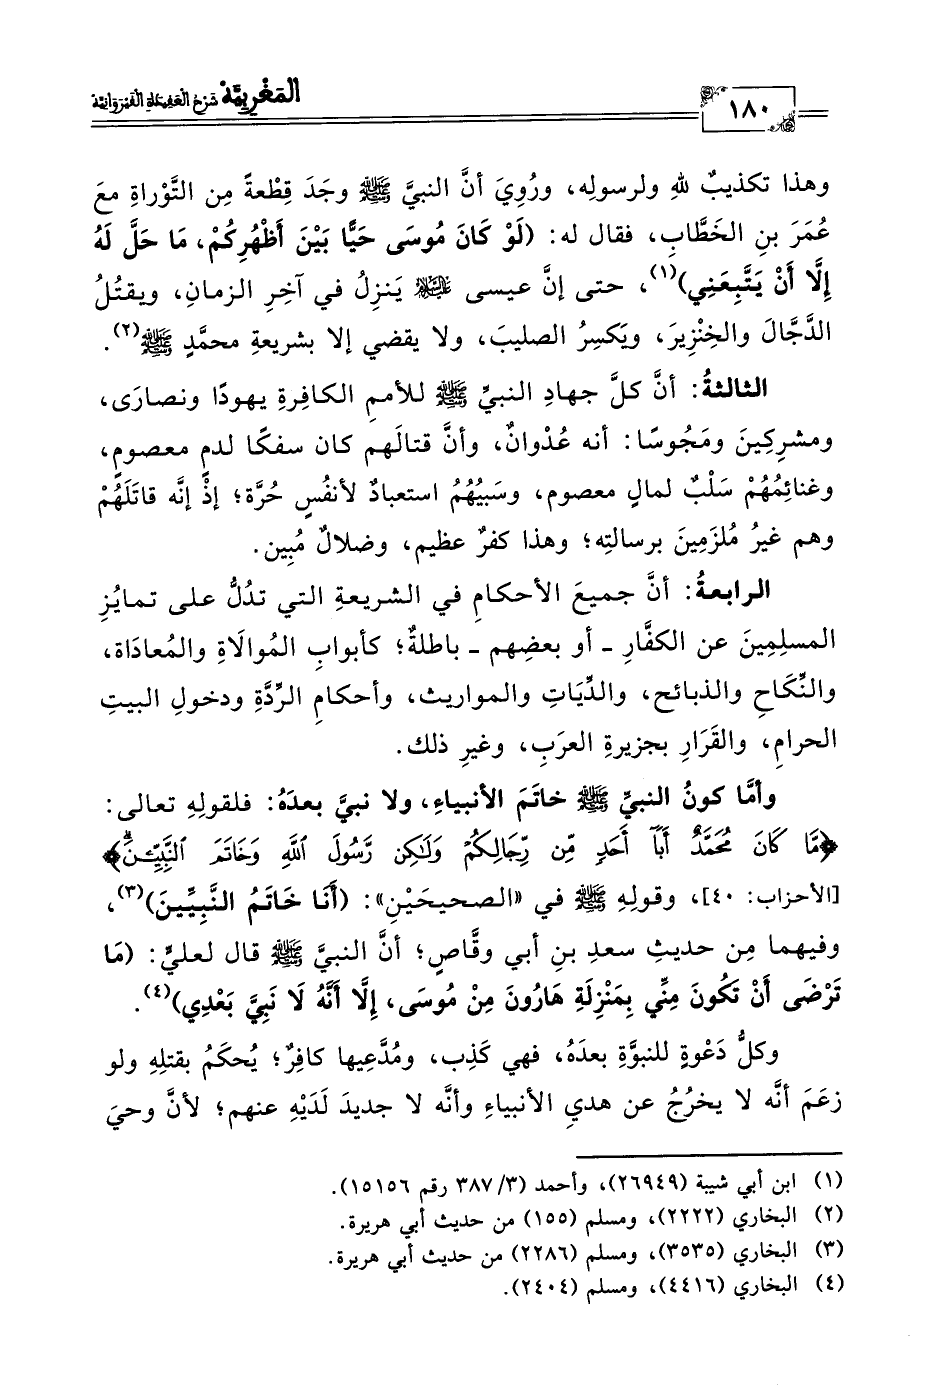 المغربية شرح العقيدة القيروانية
١٨٠
وهذا تكذيبٌ للهِ ولرسولِه، ورُوِيَ أنَّ النبيَّ ﷺ وجَدَ قِطْعةً مِن التَّوْراةِ معَ
عُمَرَ بنِ الخَطَّابِ، فقال له: (لَوْ كَانَ مُوسَى حَيًّا بَيْنَ أَظْهُرِكُمْ، مَا حَلَّ لَهُ
إِلَّا أَنْ يَتَّبِعَنِي)(١)، حتى إنَّ عيسى ﵇ يَنزِلُ في آخِرِ الزمانِ، ويقتُلُ
الدَّجَّالَ والخِنْزِيرَ، ويَكسِرُ الصليبَ، ولا يقضي إلا بشريعةِ محمَّدٍ ﷺ(٢).
الثالثةُ: أنَّ كلَّ جهادِ النبيِّ ﷺ للأممِ الكافِرةِ يهودًا ونصارَى،
ومشرِكِينَ ومَجُوسًا: أنه عُدْوانٌ، وأنَّ قتالَهم كان سفكًا لدمٍ معصومٍ،
وغنائِمُهُمْ سَلْبٌ لمالٍ معصوم، وسَبيُهُمُ استعبادٌ لأنفُسٍ حُرَّة؛ إذْ إنَّه قاتَلَهُمْ
وهم غيرُ مُلزَمِينَ برسالتِه؛ وهذا كفرٌ عظيم، وضلالٌ مُبِين.
الرابعةُ: أنَّ جميعَ الأحكامِ في الشريعةِ التي تدُلُّ على تمايُزِ
المسلِمِينَ عن الكفَّارِ ـ أو بعضِهم ـ باطلةٌ؛ كأبوابِ المُوالَاةِ والمُعادَاة،
والنِّكَاحِ والذبائح، والدِّيَاتِ والمواريث، وأحكامِ الرِّدَّةِ ودخولِ البيتِ
الحرامِ، والقَرَارِ بجزيرةِ العرَبِ، وغيرِ ذلك.
وأمَّا كونُ النبيِّ ﷺ خاتَمَ الأنبياءِ، ولا نبيَّ بعدَهُ: فلقولِهِ تعالى:
﴿مَّا كَانَ مُحَمَّدٌ أَبَآ أَحَدٖ مِّن رِّجَالِكُمۡ وَلَٰكِن رَّسُولَ ٱللَّهِ وَخَاتَمَ ٱلنَّبِيِّـۧنَۗ﴾
[الأحزاب: ٤٠]، وقولِهِ ﷺ في «الصحيحَيْنِ»: (أَنَا خَاتَمُ النَّبِيِّينَ)(٣)،
وفيهما مِن حديثِ سعدِ بنِ أبي وقَّاصٍ؛ أنَّ النبيَّ ﷺ قال لعليٍّ: (مَا
تَرْضَى أَنْ تَكُونَ مِنِّي بِمَنْزِلَةِ هَارُونَ مِنْ مُوسَى، إِلَّا أَنَّهُ لَا نَبِيَّ بَعْدِي)(٤).
وكلُّ دَعْوةٍ للنبوَّةِ بعدَهُ، فهي كَذِب، ومُدَّعِيها كافِرٌ؛ يُحكَمُ بقتلِهِ ولو
زعَمَ أنَّه لا يخرُجُ عن هديِ الأنبياءِ وأنَّه لا جديدَ لَدَيْهِ عنهم؛ لأنَّ وحيَ
(١) ابن أبي شيبة (٢٦٩٤٩)، وأحمد (٣/ ٣٨٧ رقم ١٥١٥٦).
(٢) البخاري (٢٢٢٢)، ومسلم (١٥٥) من حديث أبي هريرة.
(٣) البخاري (٣٥٣٥)، ومسلم (٢٢٨٦) من حديث أبي هريرة.
(٤) البخاري (٤٤١٦)، ومسلم (٢٤٠٤).